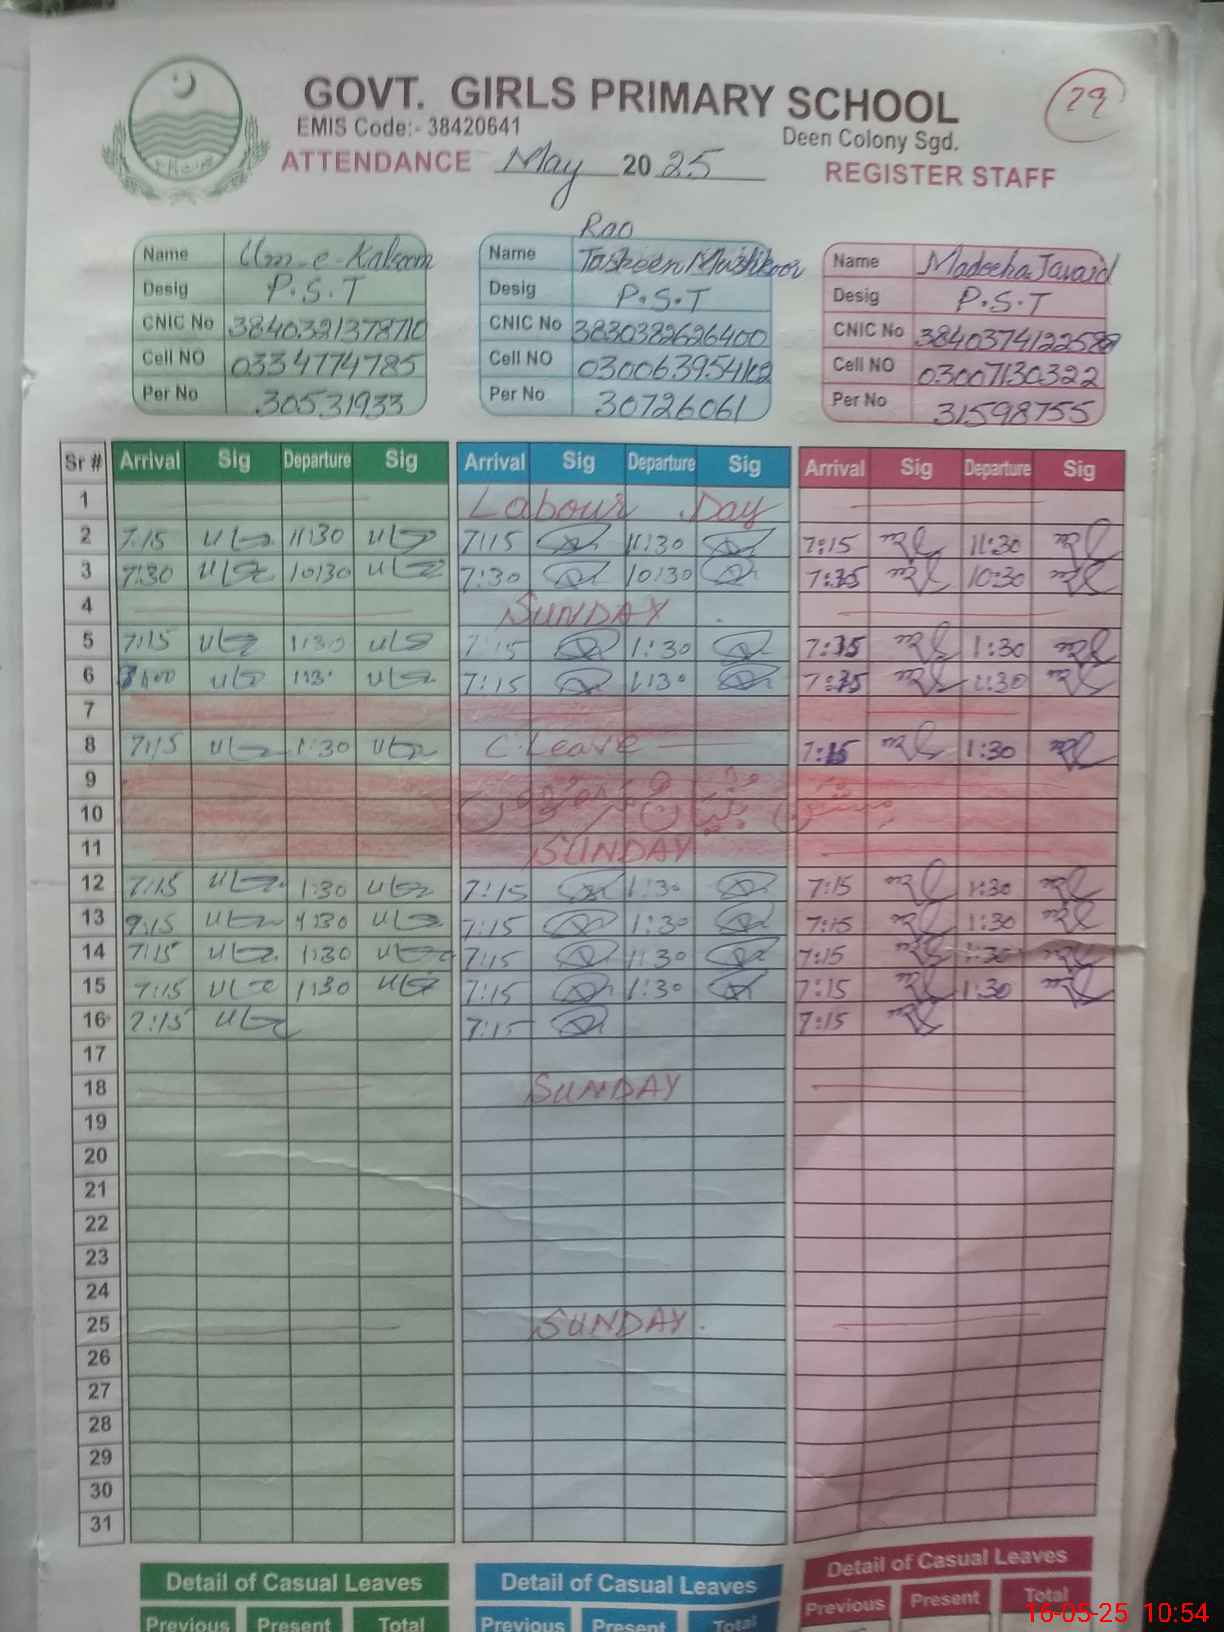 GOVT. GIRLS PRIMARY SCHOOL
29
EMIS Code:- 38420641
Deen Colony Sgd.
ATTENDANCE May 2025 REGISTER STAFF
Name Um-e-Kalsoom
Desig P.S.T
CNIC No 3840321378710
Cell NO 0334774785
Per No 30531933
Rao
Name Taskeen Mushkoor
Desig P.S.T
CNIC No 3830382626400
Cell NO
Per No 30726061
Name Madeeha Javaid
Desig P.S.T
CNIC No
Cell NO 03007130322
Per No 31598755
Sr # Arrival Sig Departure Sig Arrival Sig Departure Sig Arrival Sig Departure Sig
1 Labour Day
2 7:15 11:30 7:15 11:30 7:15 11:30
3 7:30 10:30 7:30 10:30 10:30
4 SUNDAY
5 7:15 1:30 7:15 1:30 1:30
6 1:30 7:15 1:30 1:30
7
8 7:15 1:30 C.Leave 7:15 1:30
9
10
11 SUNDAY
12 7:15 1:30 7:15 1:30 7:15 1:30
13 1:30 7:15 1:30 7:15 1:30
14 7:15 1:30 7:15 1:30 7:15 1:30
15 7:15 1:30 7:15 1:30 7:15 1:30
16 7:15 7:15 7:15
17
18 SUNDAY
19
20
21
22
23
24
25 SUNDAY.
26
27
28
29
30
31
Detail of Casual Leaves Detail of Casual Leaves Detail of Casual Leaves
Previous Present Total Previous Present Total Previous Present Total
16-05-25 10:54